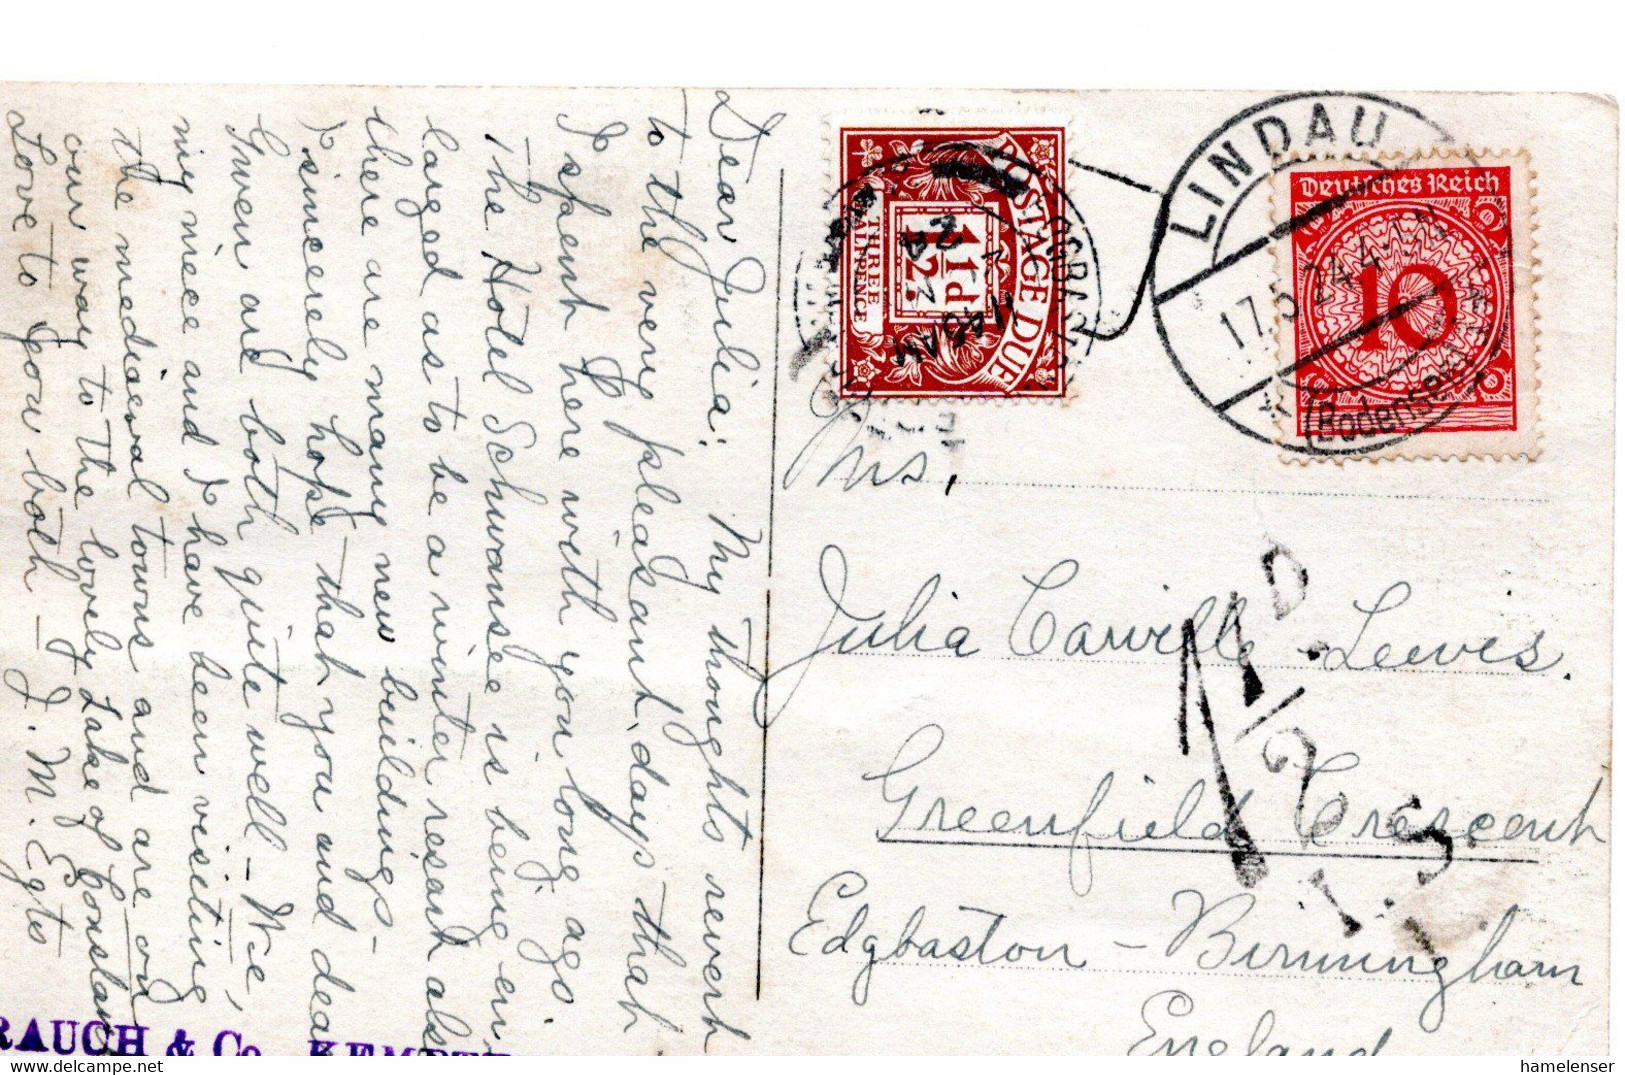 Dear Julia: My thoughts revert
to the very pleasant days that
I spent here with you long ago
The Hotel Schwansee is being en-
larged as to be a winter resort also
there are many new buildings -
I sincerely hope that you and dear
Gwen are both quite well - We,
my niece and I have been visiting
the mediaeval towns and are on
our way to the lovely Lake of Constance
Love to you both - J. M. Egts
RAUCH & Co. KEMPTE
POSTAGE DUE
1½d
THREE
HALFPENCE
11 45 AM
24
LINDAU
17.5.24.4-5N
(Bodensee)
Deutsches Reich
10
Mrs,
Julia Carville-Leeves.
Greenfield Crescent
Edgbaston - Birmingham
England
1½D.
I.S.
hamelenser